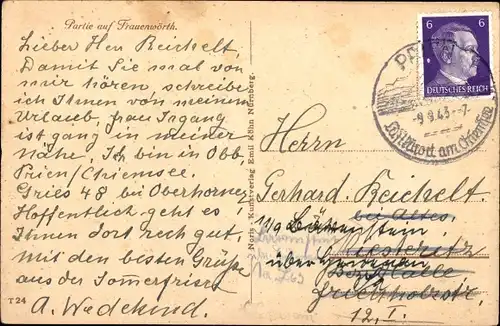 Partie auf Frauenwörth.
Lieber Herr Reichelt.
Damit Sie mal von
mir hören, schreibe
ich Ihnen von meinem
Urlaub, frau Irgang
ist ganz in meiner
Nähe. Ich bin in Obb
Prien/Chiemsee.
Gries 48 bei
Hoffentlich geht es
Ihnen dort recht gut.
mit den besten Grüße
aus der Somerfrische
A. Wedekind.
T 24
Noris Kunstverlag Emil Köhn Nürnberg.
6 6
DEUTSCHES REICH
PRIEN
-9.9.43.-7-
am Chiemsee
Herrn
Gerhard. Reichelt.
bei
Bärenstein.
über
12. I.